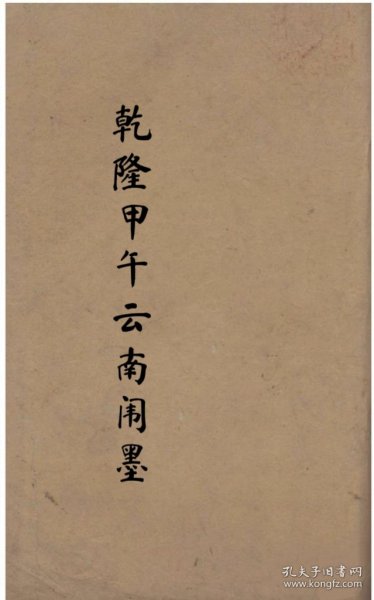 乾隆甲午云南闱墨
孔夫子旧书网
www.kongfz.com